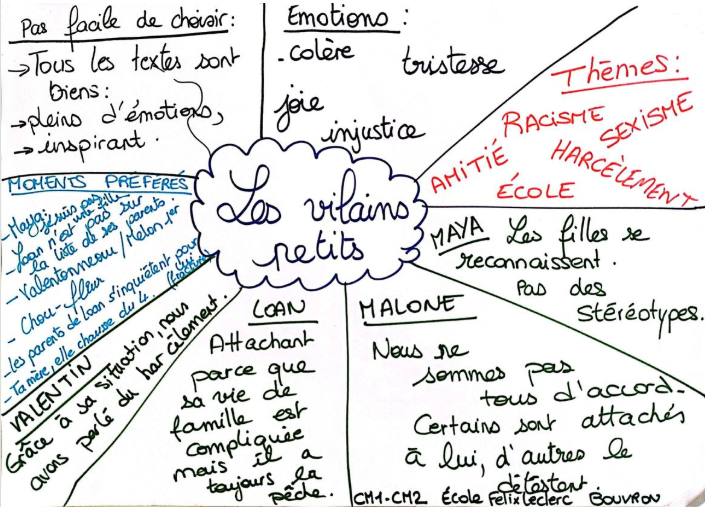 Pas facile de choisir :
→Tous les textes sont
biens :
→pleins d'émotions,
→inspirant.
Emotions :
-colère
tristesse
joie
injustice
Thèmes :
RACISME
SEXISME
AMITIÉ
HARCÈLEMENT
ÉCOLE
Les vilains
petits
MOMENTS PRÉFÉRÉS
-Maya: pas une fille
-Loan n'est pas sur
la liste de ses parents.
-Valentonneau / Melon
- Chou-fleur
-les parents de Loan s'inquiètent pour lui
-Ta mère, elle chausse du 4.
MAYA Les filles se
reconnaissent.
Pas des
stéréotypes.
VALENTIN
Grâce à sa situation, nous
avons parlé du harcèlement.
LOAN
Attachant
parce que
sa vie de
famille est
compliquée
mais il a
toujours la
pêche.
MALONE
Nous ne
sommes pas
tous d'accord.
Certains sont attachés
à lui, d'autres le
détestent.
CM1-CM2 École Félix Leclerc BOUVRON